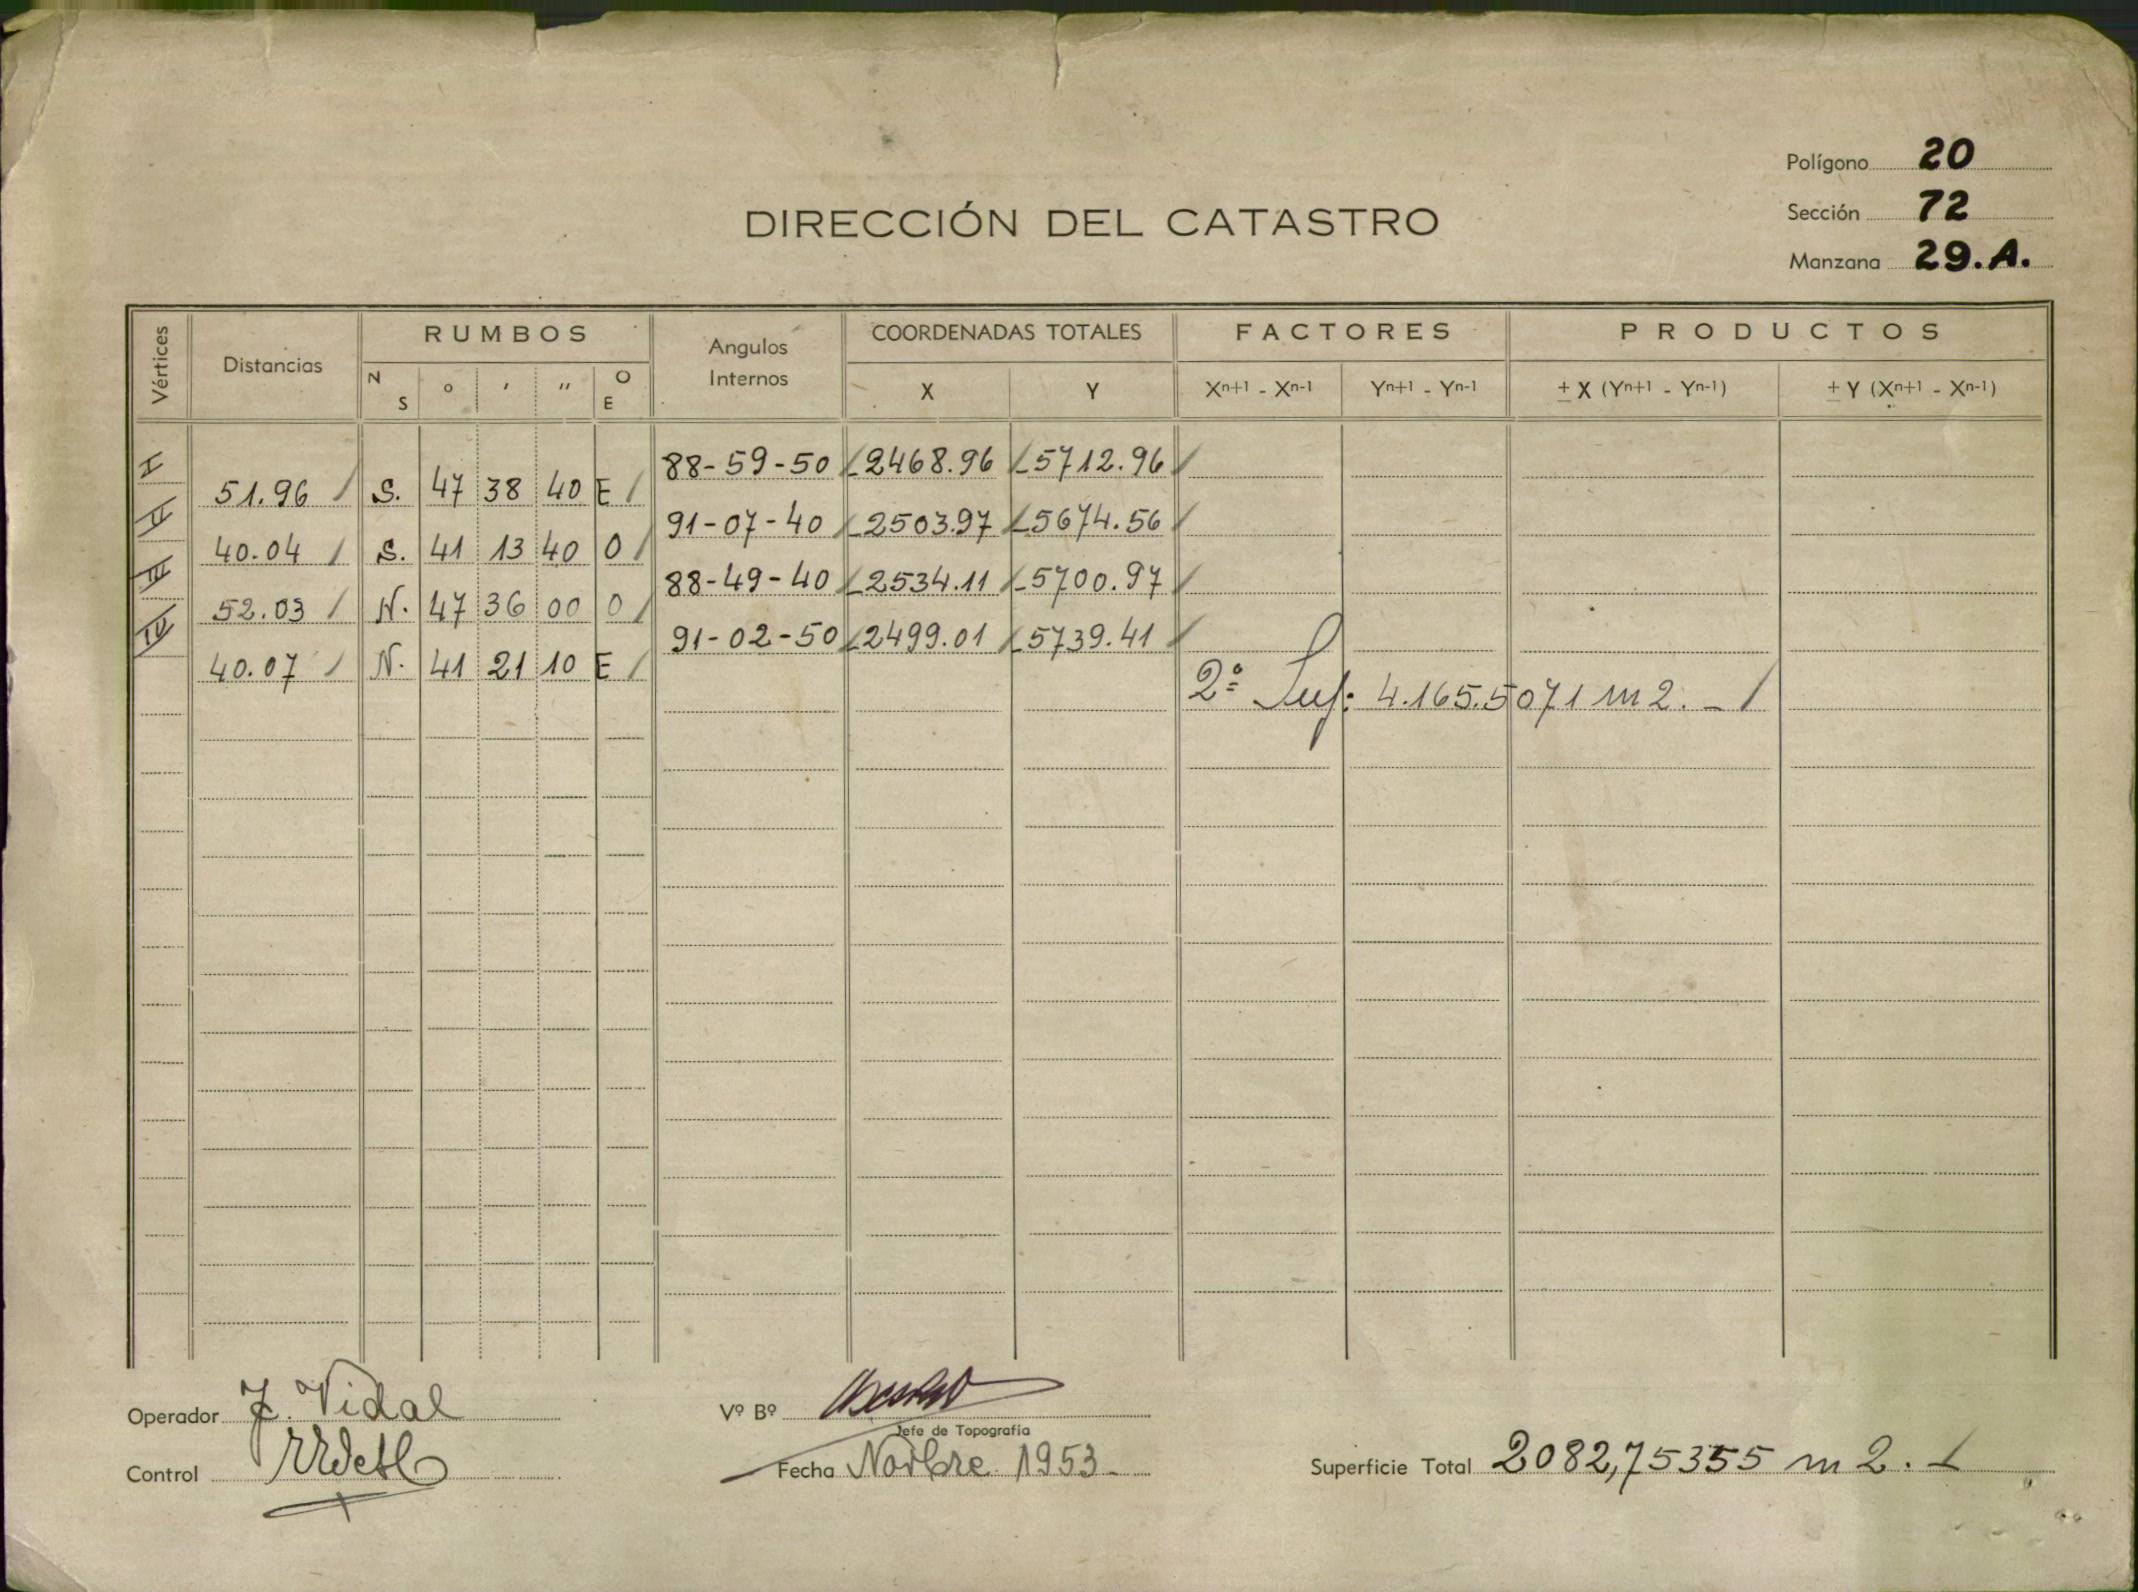 Polígono 20
Sección 72
Manzana 29.A.
DIRECCIÓN DEL CATASTRO
Vértices Distancias RUMBOS Angulos Internos COORDENADAS TOTALES FACTORES PRODUCTOS
N S ° ' '' O E X Y Xⁿ⁺¹ - Xⁿ⁻¹ Yⁿ⁺¹ - Yⁿ⁻¹ ± X (Yⁿ⁺¹ - Yⁿ⁻¹) ± Y (Xⁿ⁺¹ - Xⁿ⁻¹)
I 88-59-50 -2468.96 -5712.96
51.96 S. 47 38 40 E
II 91-07-40 -2503.97 -5674.56
40.04 S. 41 13 40 O
III 88-49-40 -2534.11 -5700.97
52.03 N. 47 36 00 O
IV 91-02-50 -2499.01 -5739.41
40.07 N. 41 21 10 E
2ª Suf: 4.165.5071 m2.-
Operador J. Vidal
Control
Vº Bº
Jefe de Topografía
Fecha Novbre 1953.
Superficie Total 2082,75355 m2.-